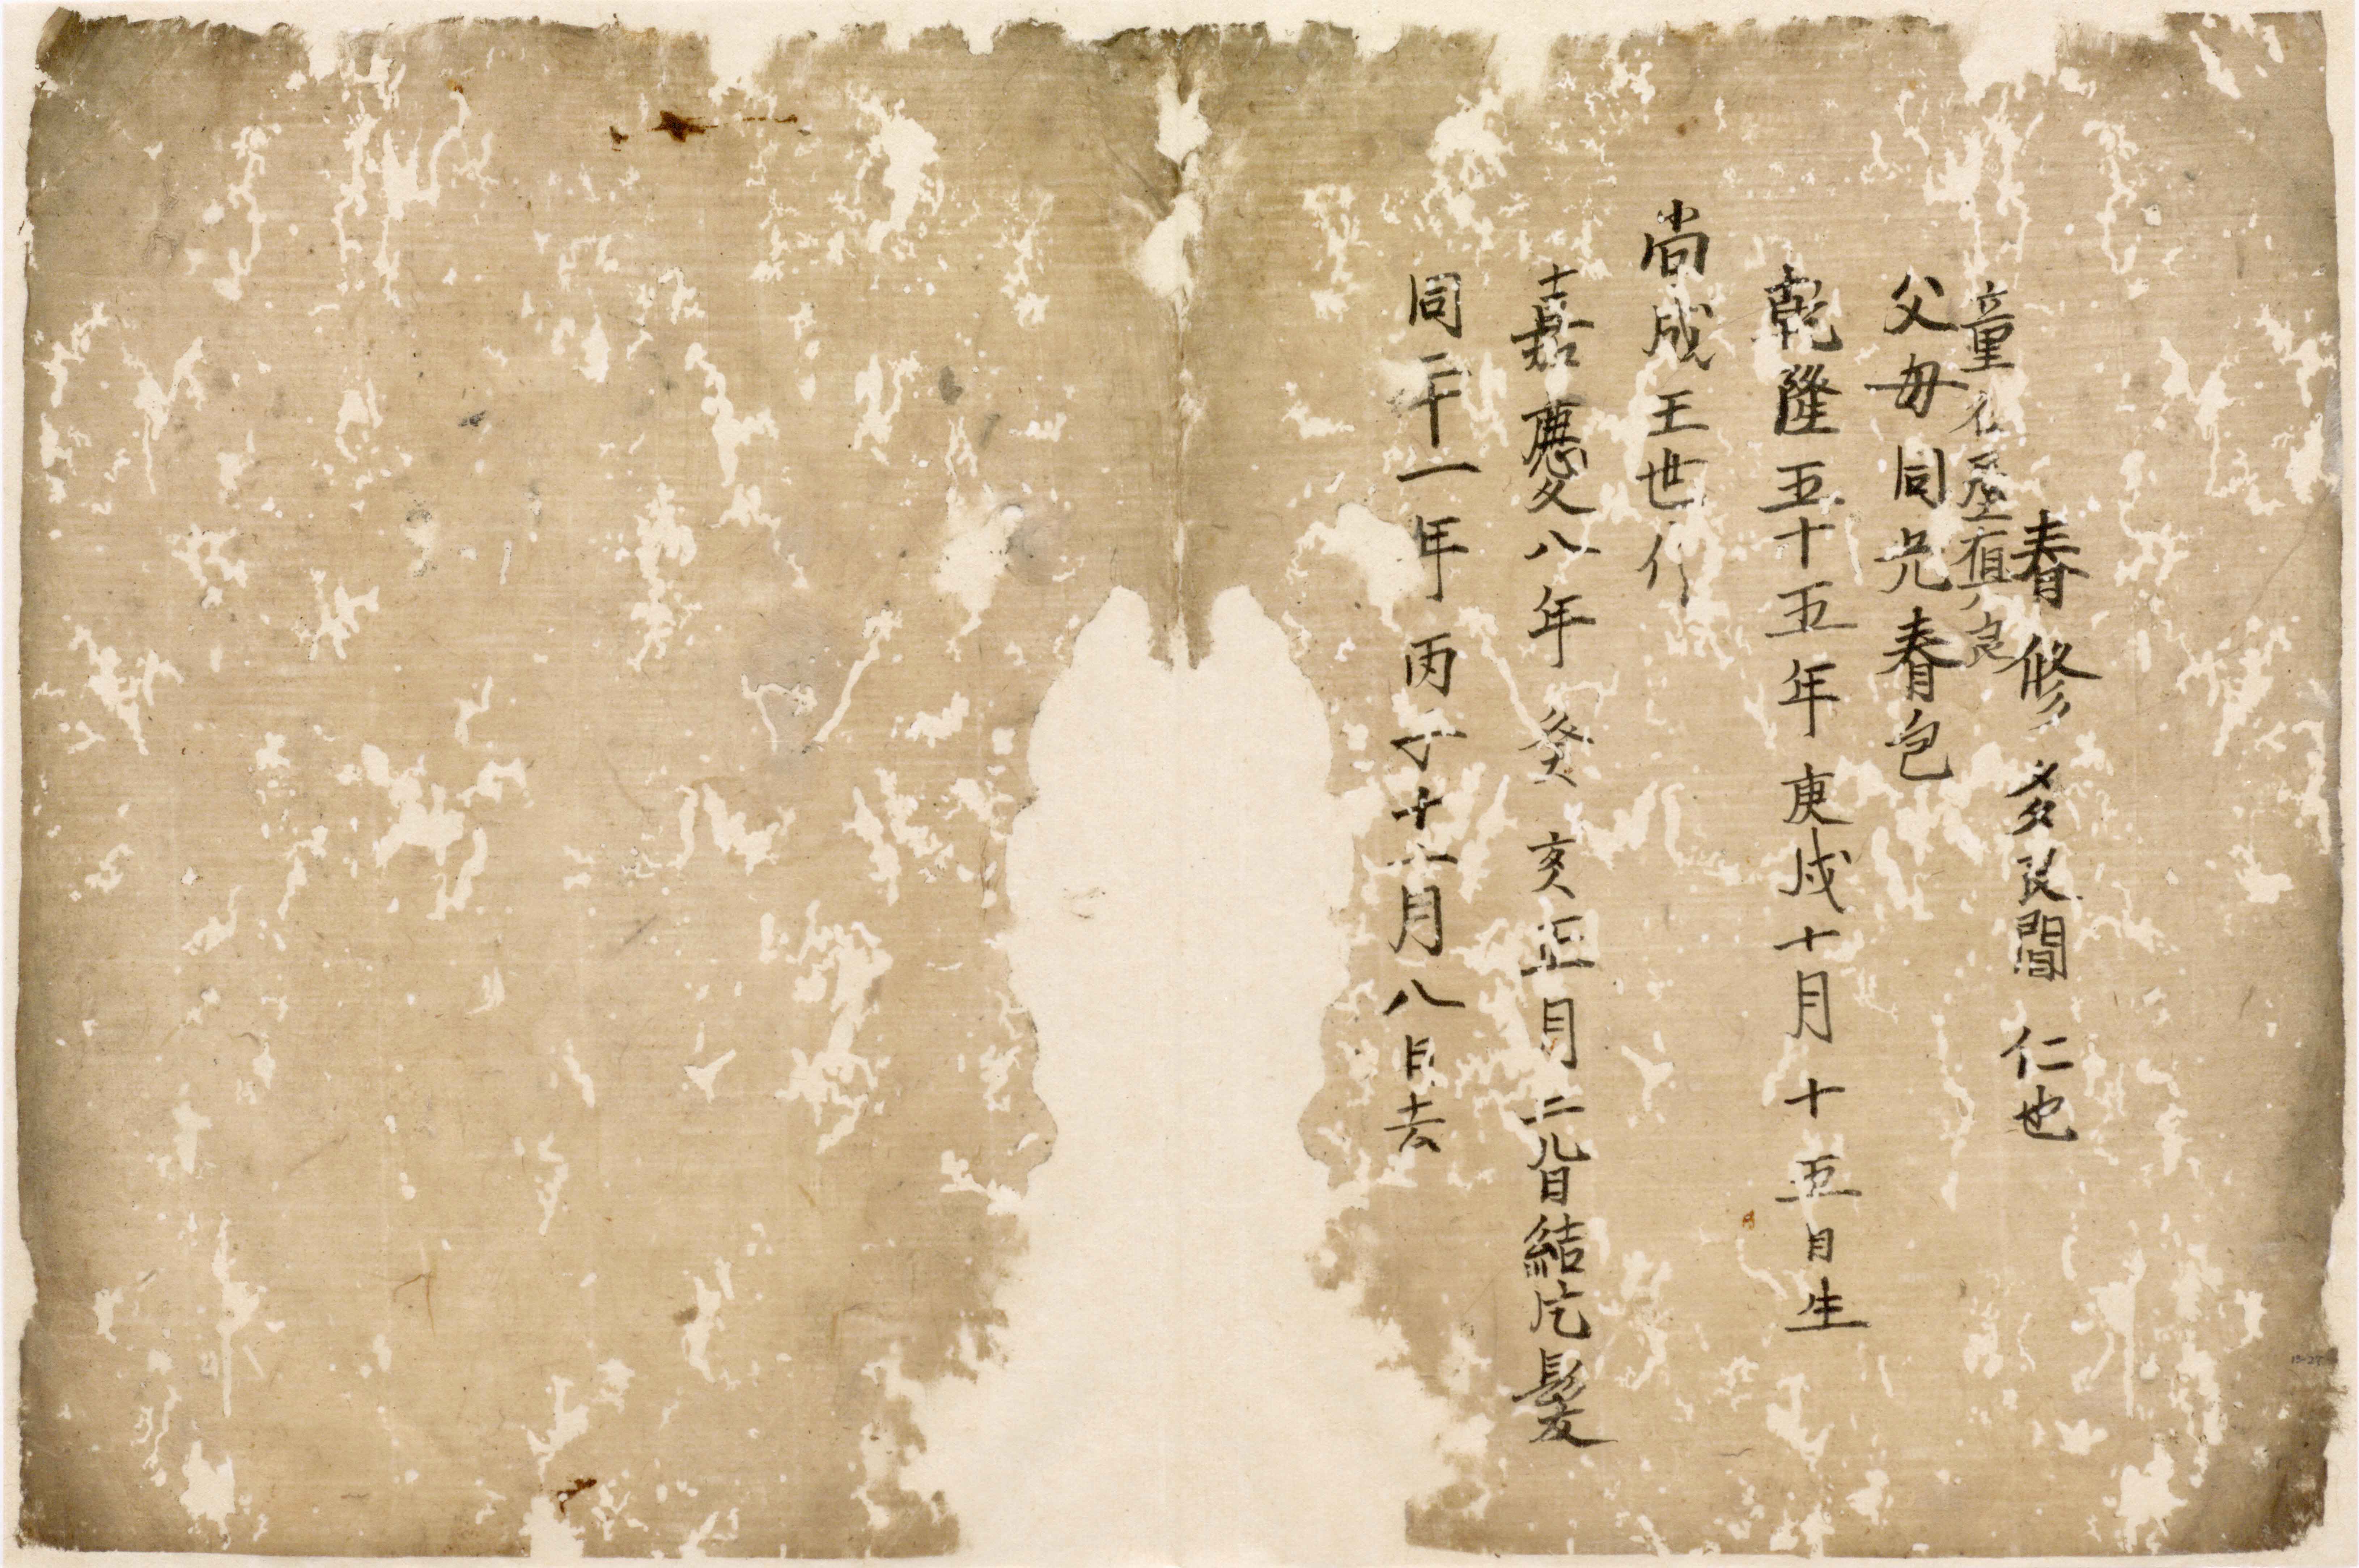 春修 多良間仁也
童名屋真良
父母同兄春包
乾隆五十五年庚戌十月十五日生
尚成王世代
嘉慶八年癸亥正月二九日結片髪
同二十一年丙子十一月八日去